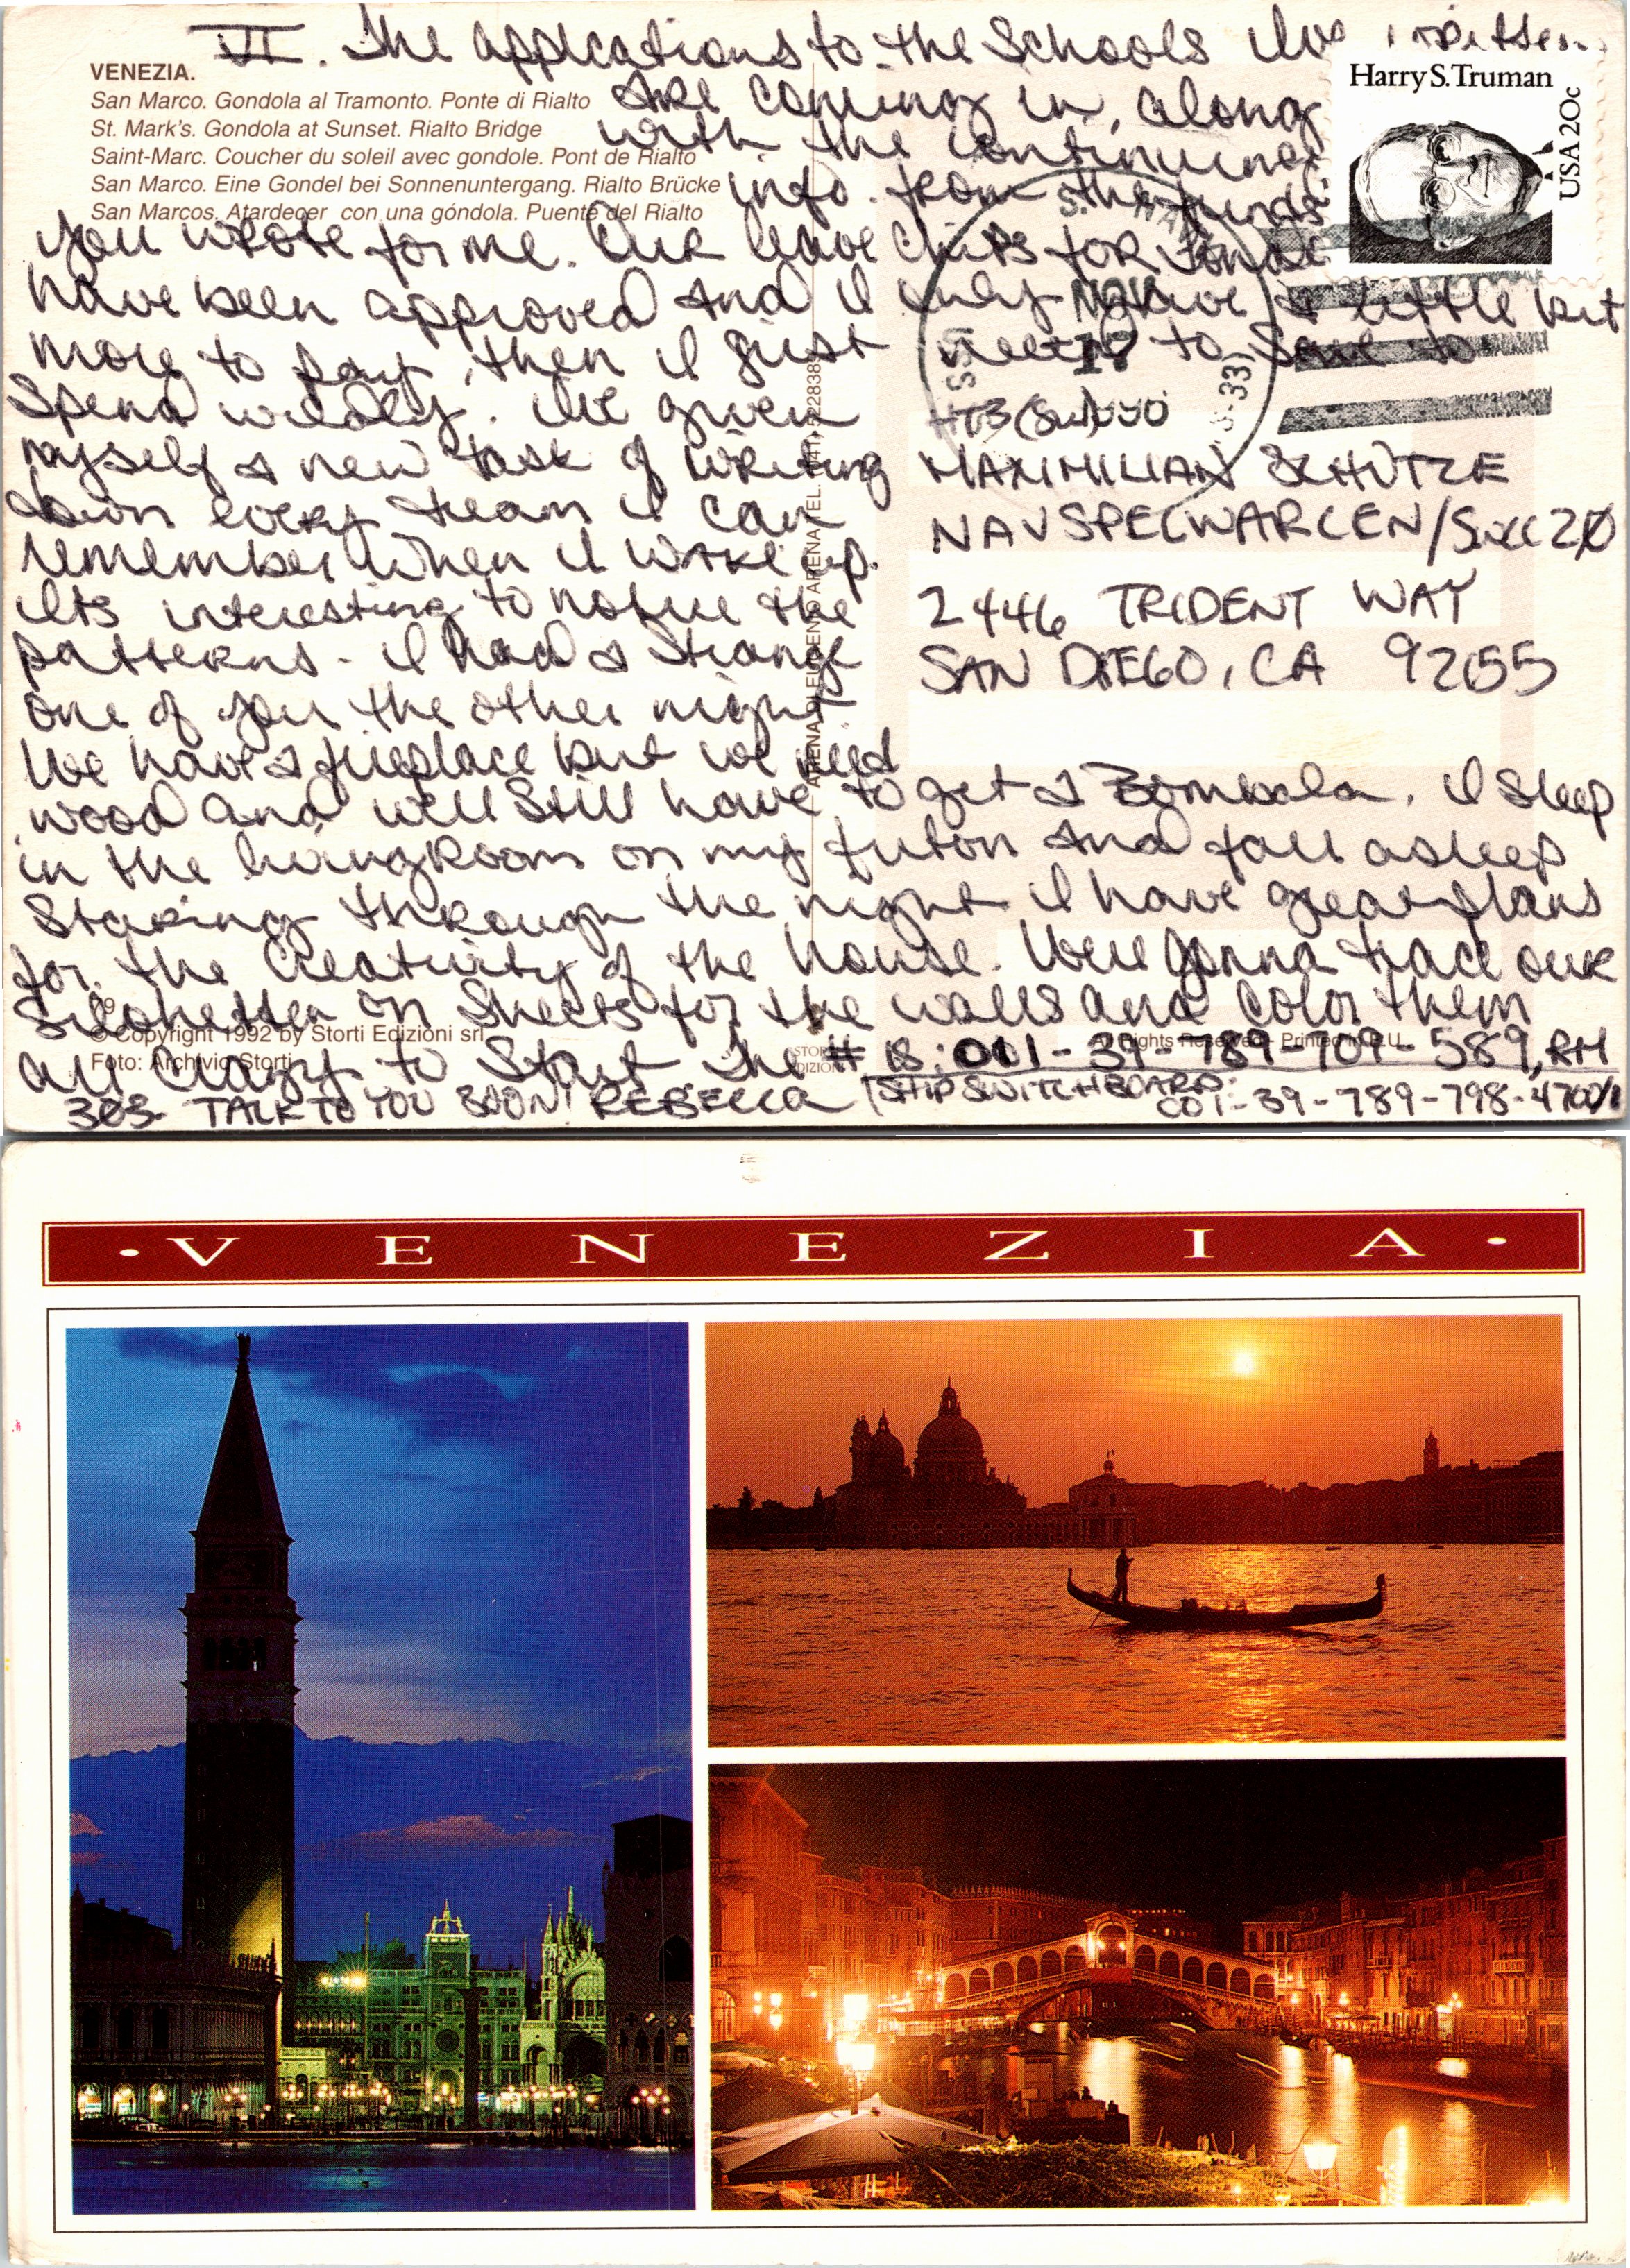 VI. The applications to the Schools I've written
VENEZIA.
San Marco. Gondola al Tramonto. Ponte di Rialto
St. Mark's. Gondola at Sunset. Rialto Bridge
Saint-Marc. Coucher du soleil avec gondole. Pont de Rialto
San Marco. Eine Gondel bei Sonnenuntergang. Rialto Brücke
San Marcos. Atardecer con una góndola. Puente del Rialto
Harry S. Truman
USA 20c
are coming in, along
with the continuing
info. from the funds
you wrote for me. Our leave chits for
have been approved and I only have a little bit
more to pay, then I just need to save to
spend wildly. Ive given
myself a new task of writing
down every dream I can
remember when I wake up.
Its interesting to notice the
patterns - I had a strange
one of you the other night.
We have a fireplace but we need
wood and we'll still have to get a Bombola. I sleep
in the livingroom on my futon and fall asleep
staring through the night. I have great plans
for the creativity of the house. Were gonna trace our
silohettes on sheets for the walls and color them
all crazy to start. The # is: 011-39-789-709-589, RM
303 TALK TO YOU SOON! REBECCA (SHIP SWITCHBOARD:
001-39-789-798-4700/1
NOV
17
MAXIMILIAN SCHUTZE
NAVSPECWARCEN/
2446 TRIDENT WAY
SAN DIEGO, CA 92155
© Copyright 1992 by Storti Edizioni srl
Foto: Archivio Storti
All Rights Reserved - Printed in E.U.
STORTI
EDIZIONI
• V E N E Z I A •